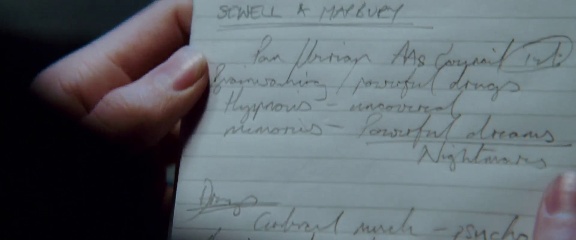 SEWELL & MAYBURY
Pan
Brainwashing / powerful drugs
Hypnosis - uncovered
memories - Powerful dreams
Nightmares
Drugs
Control - psycho